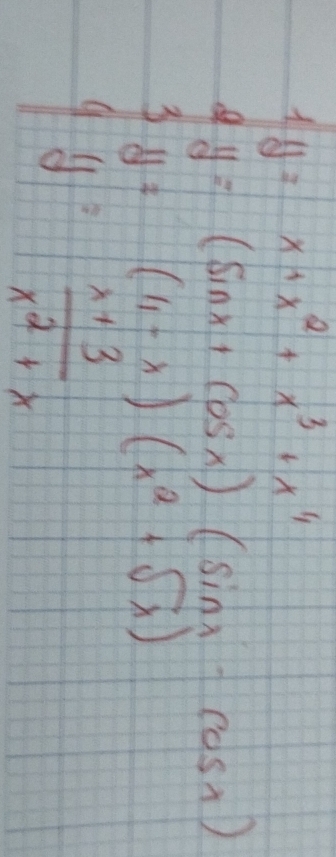 1 y = x + x² + x³ + x⁴
2 y = (sin x + cos x) (sin x - cos x)
3 y = (4 - x) (x² + 5x)
4 y = x + 3 / x² + x